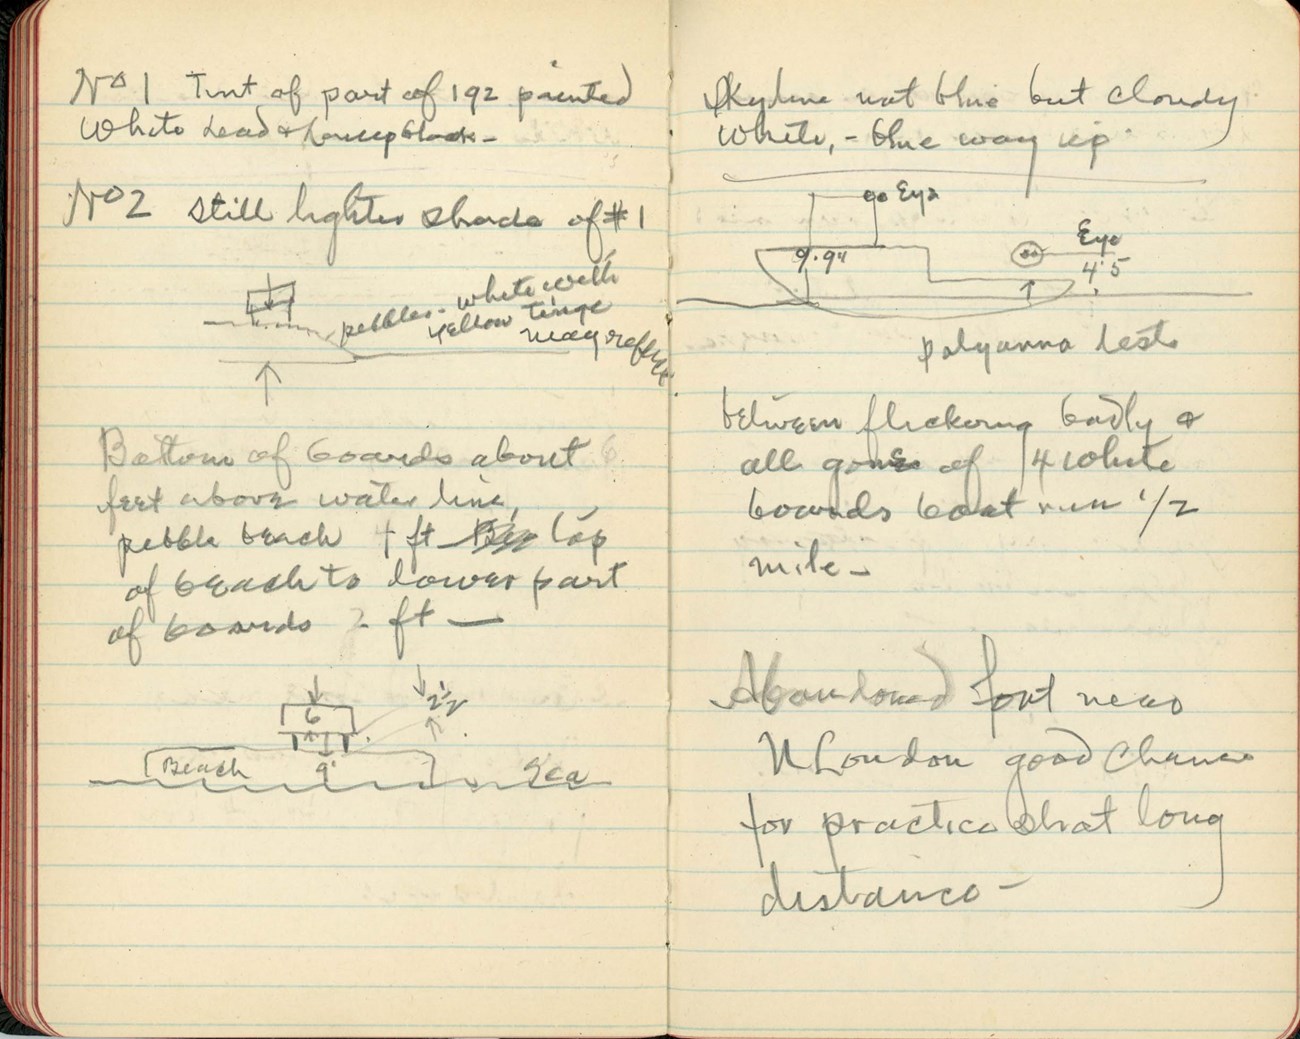 No 1 Tint of part of 192 painted
White Lead & Lampblack -
No 2 Still lighter shade of #1
pebbles. white with
yellow tinge
may reflect
Bottom of boards about 6
feet above water line,
pebble beach 4 ft top
of beach to lower part
of boards 2 ft —
6
2½
Beach
9'
Sea
Skyline not blue but cloudy
White, - blue way up
Eye
9.94
Eye
4'5
polyanna tests
between flickering badly &
all gone of 14 white
boards boat run 1/2
mile -
Abandoned fort near
N London good chance
for practice shot long
distance -